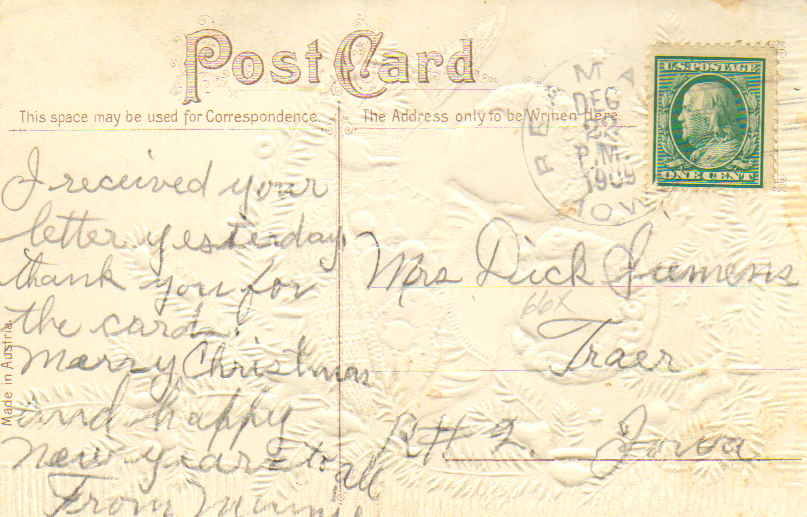 Post Card
This space may be used for Correspondence.
The Address only to be Written Here.
U.S. POSTAGE
ONE CENT
DEC
22
P.M.
1909
IOWA
I received your
letter yesterday,
thank you for
the card.
Marry Christmas
and happy
new year to all
From Minnie
Mrs Dick
66X
Traer
R# 2. Iowa
Made in Austria.